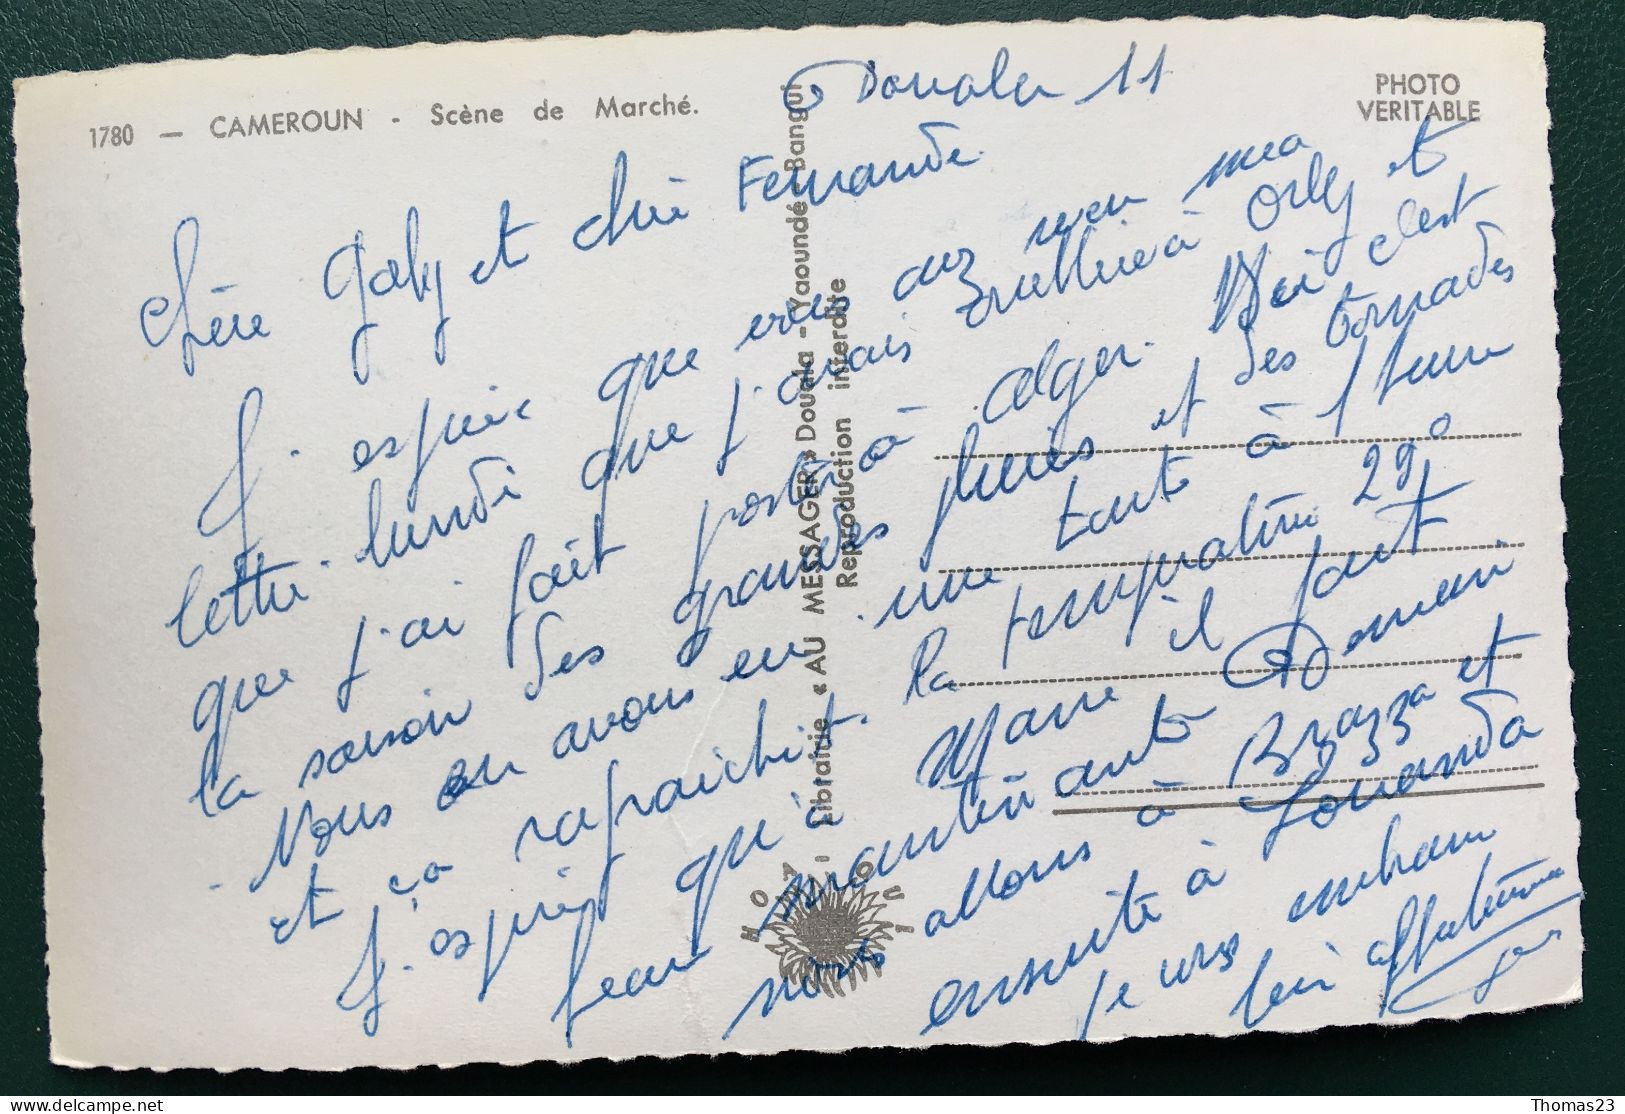 1780 — CAMEROUN - Scène de Marché.
PHOTO
VERITABLE
Douala 11
Chère Gaby et chère Fernande.
J'espère que vous avez reçu ma
lettre lundi que j'avais oubliée à Orly et
que j'ai fait poster à Alger. Ici c'est
la saison des grandes pluies et des tornades
Nous en avons eu une tout à l'heure
et ça rafraichit. la température 29°
J'espère qu'à Marne il fait
beau maintenant Demain
nous allons à Brazza et
ensuite à Louanda
je vous embrasse
bien affectueusement
Librairie « AU MESSAGER » Douala - Yaoundé - Bangui
Reproduction interdite
HOA-QUI
Thomas23